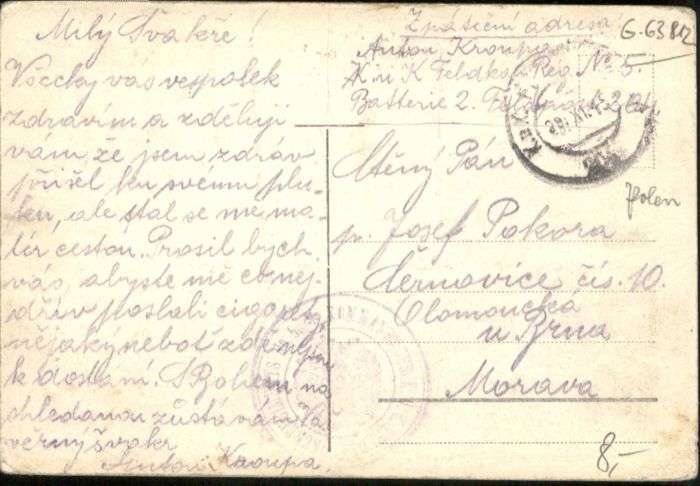 Milý Švakře!
Všecky vás vespolek
zdravím a zděluji
vám že jsem zdráv
přišel ku svému plu-
ku, ale stal se ne ma-
lér cestou. Prosil bych
vás, abyste mě co nej-
dřív poslali cigarety
nějaký neboť zde nejsou
k dostaní. S Bohem na
shledanou zůstávám Vá
věrný švakr
Anton Kroupa.
Zpáteční adresa!
Anton Kroupa
K. u K Feldkan Reg. No 5.
Batterie 2.
G-6382
Ctěný Pán
p. Josef Pokora
Černovice čís. 10.
Olomoucká
u Brna
Morava
Polen
8,-